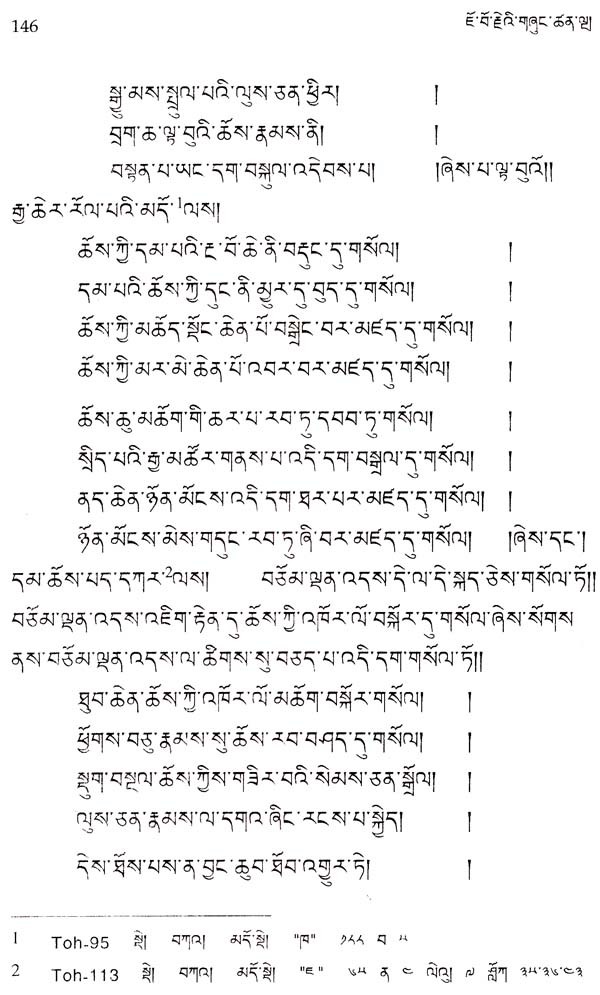 146 ཇོ་བོ་རྗེའི་གཞུང་ཚན་ལྔ།
སྒྱུ་མས་སྤྲུལ་པའི་ལུས་ཅན་ཕྱིར། །
བྲག་ཆ་ལྟ་བུའི་ཆོས་རྣམས་ནི། །
བསྟན་པ་ཡང་དག་བསྐུལ་འདེབས་པ། །ཞེས་པ་ལྟ་བུའོ།།
རྒྱ་ཆེར་རོལ་པའི་མདོ་1ལས།
ཆོས་ཀྱི་དམ་པའི་རྔ་བོ་ཆེ་ནི་བརྡུང་དུ་གསོལ། །
དམ་པའི་ཆོས་ཀྱི་དུང་ནི་མྱུར་དུ་བུད་དུ་གསོལ། །
ཆོས་ཀྱི་མཆོད་སྡོང་ཆེན་པོ་བསྒྲེང་བར་མཛད་དུ་གསོལ། །
ཆོས་ཀྱི་མར་མེ་ཆེན་པོ་འབར་བར་མཛད་དུ་གསོལ། །
ཆོས་ཆུ་མཆོག་གི་ཆར་པ་རབ་ཏུ་དབབ་ཏུ་གསོལ། །
སྲིད་པའི་རྒྱ་མཚོར་གནས་པ་འདི་དག་བསྒྲལ་དུ་གསོལ། །
ནད་ཆེན་ཉོན་མོངས་འདི་དག་ཐར་པར་མཛད་དུ་གསོལ། །
ཉོན་མོངས་མེས་གདུང་རབ་ཏུ་ཞི་བར་མཛད་དུ་གསོལ། །ཞེས་དང་།
དམ་ཆོས་པད་དཀར་2ལས། བཅོམ་ལྡན་འདས་དེ་ལ་དེ་སྐད་ཅེས་གསོལ་ཏོ།།
བཅོམ་ལྡན་འདས་འཇིག་རྟེན་དུ་ཆོས་ཀྱི་འཁོར་ལོ་བསྐོར་དུ་གསོལ་ཞེས་སོགས
ནས་བཅོམ་ལྡན་འདས་ལ་ཚིགས་སུ་བཅད་པ་འདི་དག་གསོལ་ཏོ།།
ཐུབ་ཆེན་ཆོས་ཀྱི་འཁོར་ལོ་མཆོག་བསྐོར་གསོལ། །
ཕྱོགས་བཅུ་རྣམས་སུ་ཆོས་རབ་བཤད་དུ་གསོལ། །
སྡུག་བསྔལ་ཆོས་ཀྱིས་གཟིར་བའི་སེམས་ཅན་སྒྲོལ། །
ལུས་ཅན་རྣམས་ལ་དགའ་ཞིང་རངས་པ་སྐྱེད། །
དེས་ཐོས་པས་ན་བྱང་ཆུབ་ཐོབ་འགྱུར་ཏེ། །
1 Toh-95 སྡེ། བཀའ། མདོ་སྡེ། "ཁ" ༡༨༨ བ ༥
2 Toh-113 སྡེ། བཀའ། མདོ་སྡེ། "ཇ" ༦༥ ན ༤ ལེའུ། ༧ ཤློཀ ༣༥་༣༦་༤༣